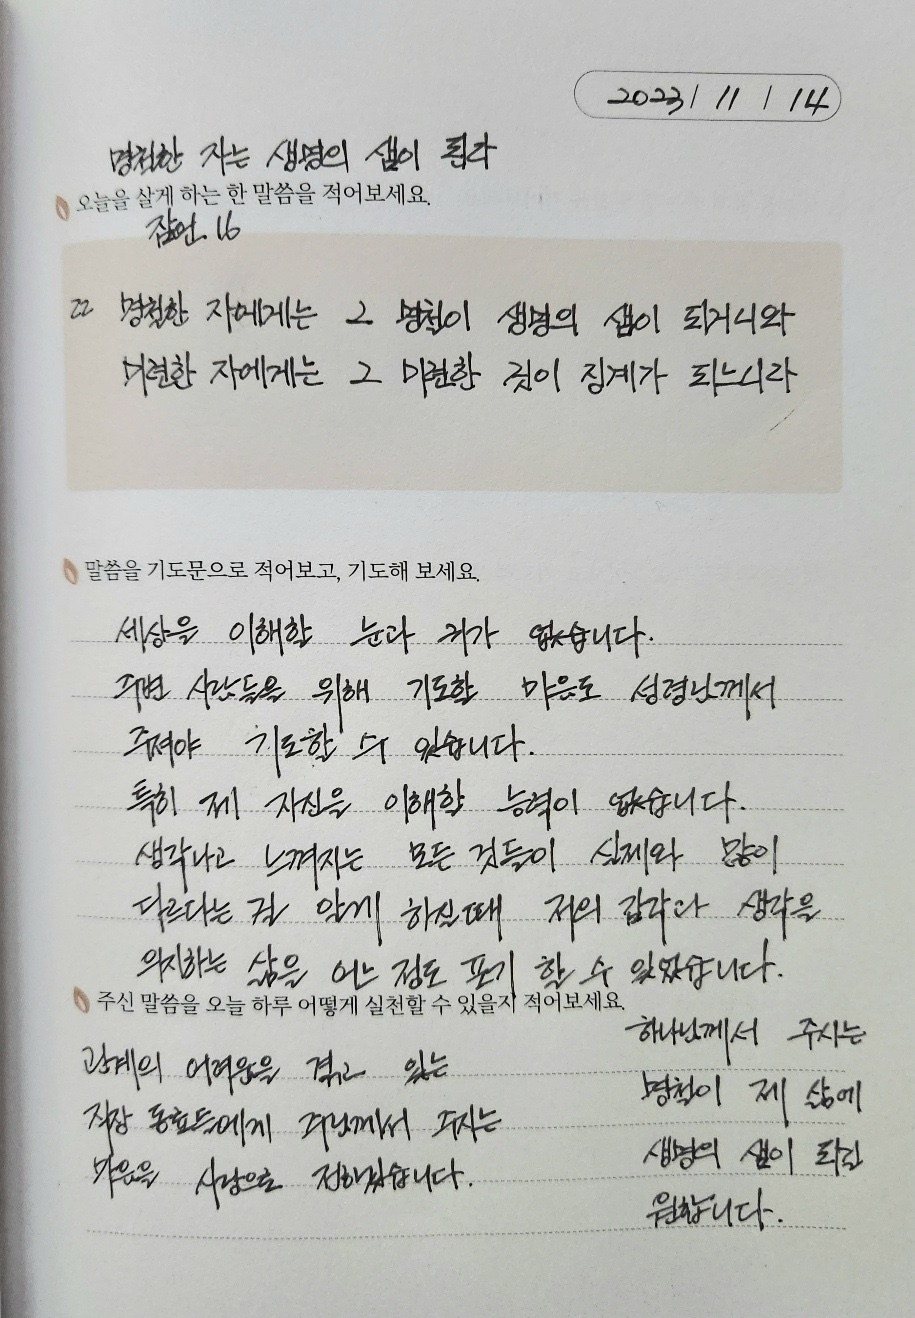 2023 / 11 / 14
명철한 자는 생명의 샘이 된다
오늘을 살게 하는 한 말씀을 적어보세요.
잠언. 16
22 명철한 자에게는 그 명철이 생명의 샘이 되거니와
미련한 자에게는 그 미련한 것이 징계가 되느니라
말씀을 기도문으로 적어보고, 기도해 보세요.
세상을 이해할 눈과 귀가 없습니다.
주변 사람들을 위해 기도할 마음도 성령님께서
주져야 기도할 수 있습니다.
특히 제 자신을 이해할 능력이 없습니다.
생각나고 느껴지는 모든 것들이 실제와 많이
다르다는 걸 알게 하실때 저의 감각과 생각을
의지하는 삶을 어느 정도 포기 할 수 있었습니다.
주신 말씀을 오늘 하루 어떻게 실천할 수 있을지 적어보세요.
관계의 어려움을 겪고 있는
직장 동료들에게 주님께서 주시는
마음을 사랑으로 전하겠습니다.
하나님께서 주시는
명철이 제 삶에
생명의 샘이 되길
원합니다.